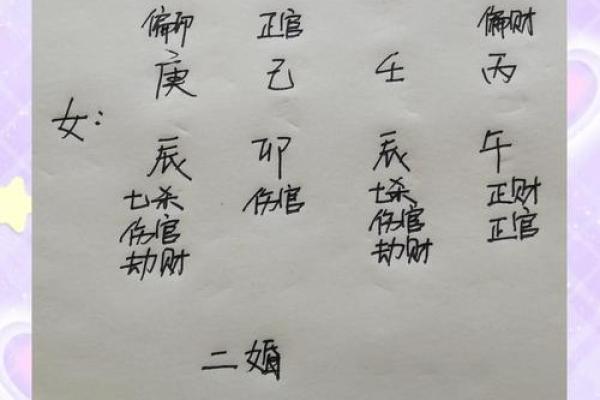 偏印 正官 偏财
庚 己 壬 丙
女：
辰 卯 辰 午
七杀 伤官 七杀 正财
伤官 伤官 正官
劫财 劫财
二婚